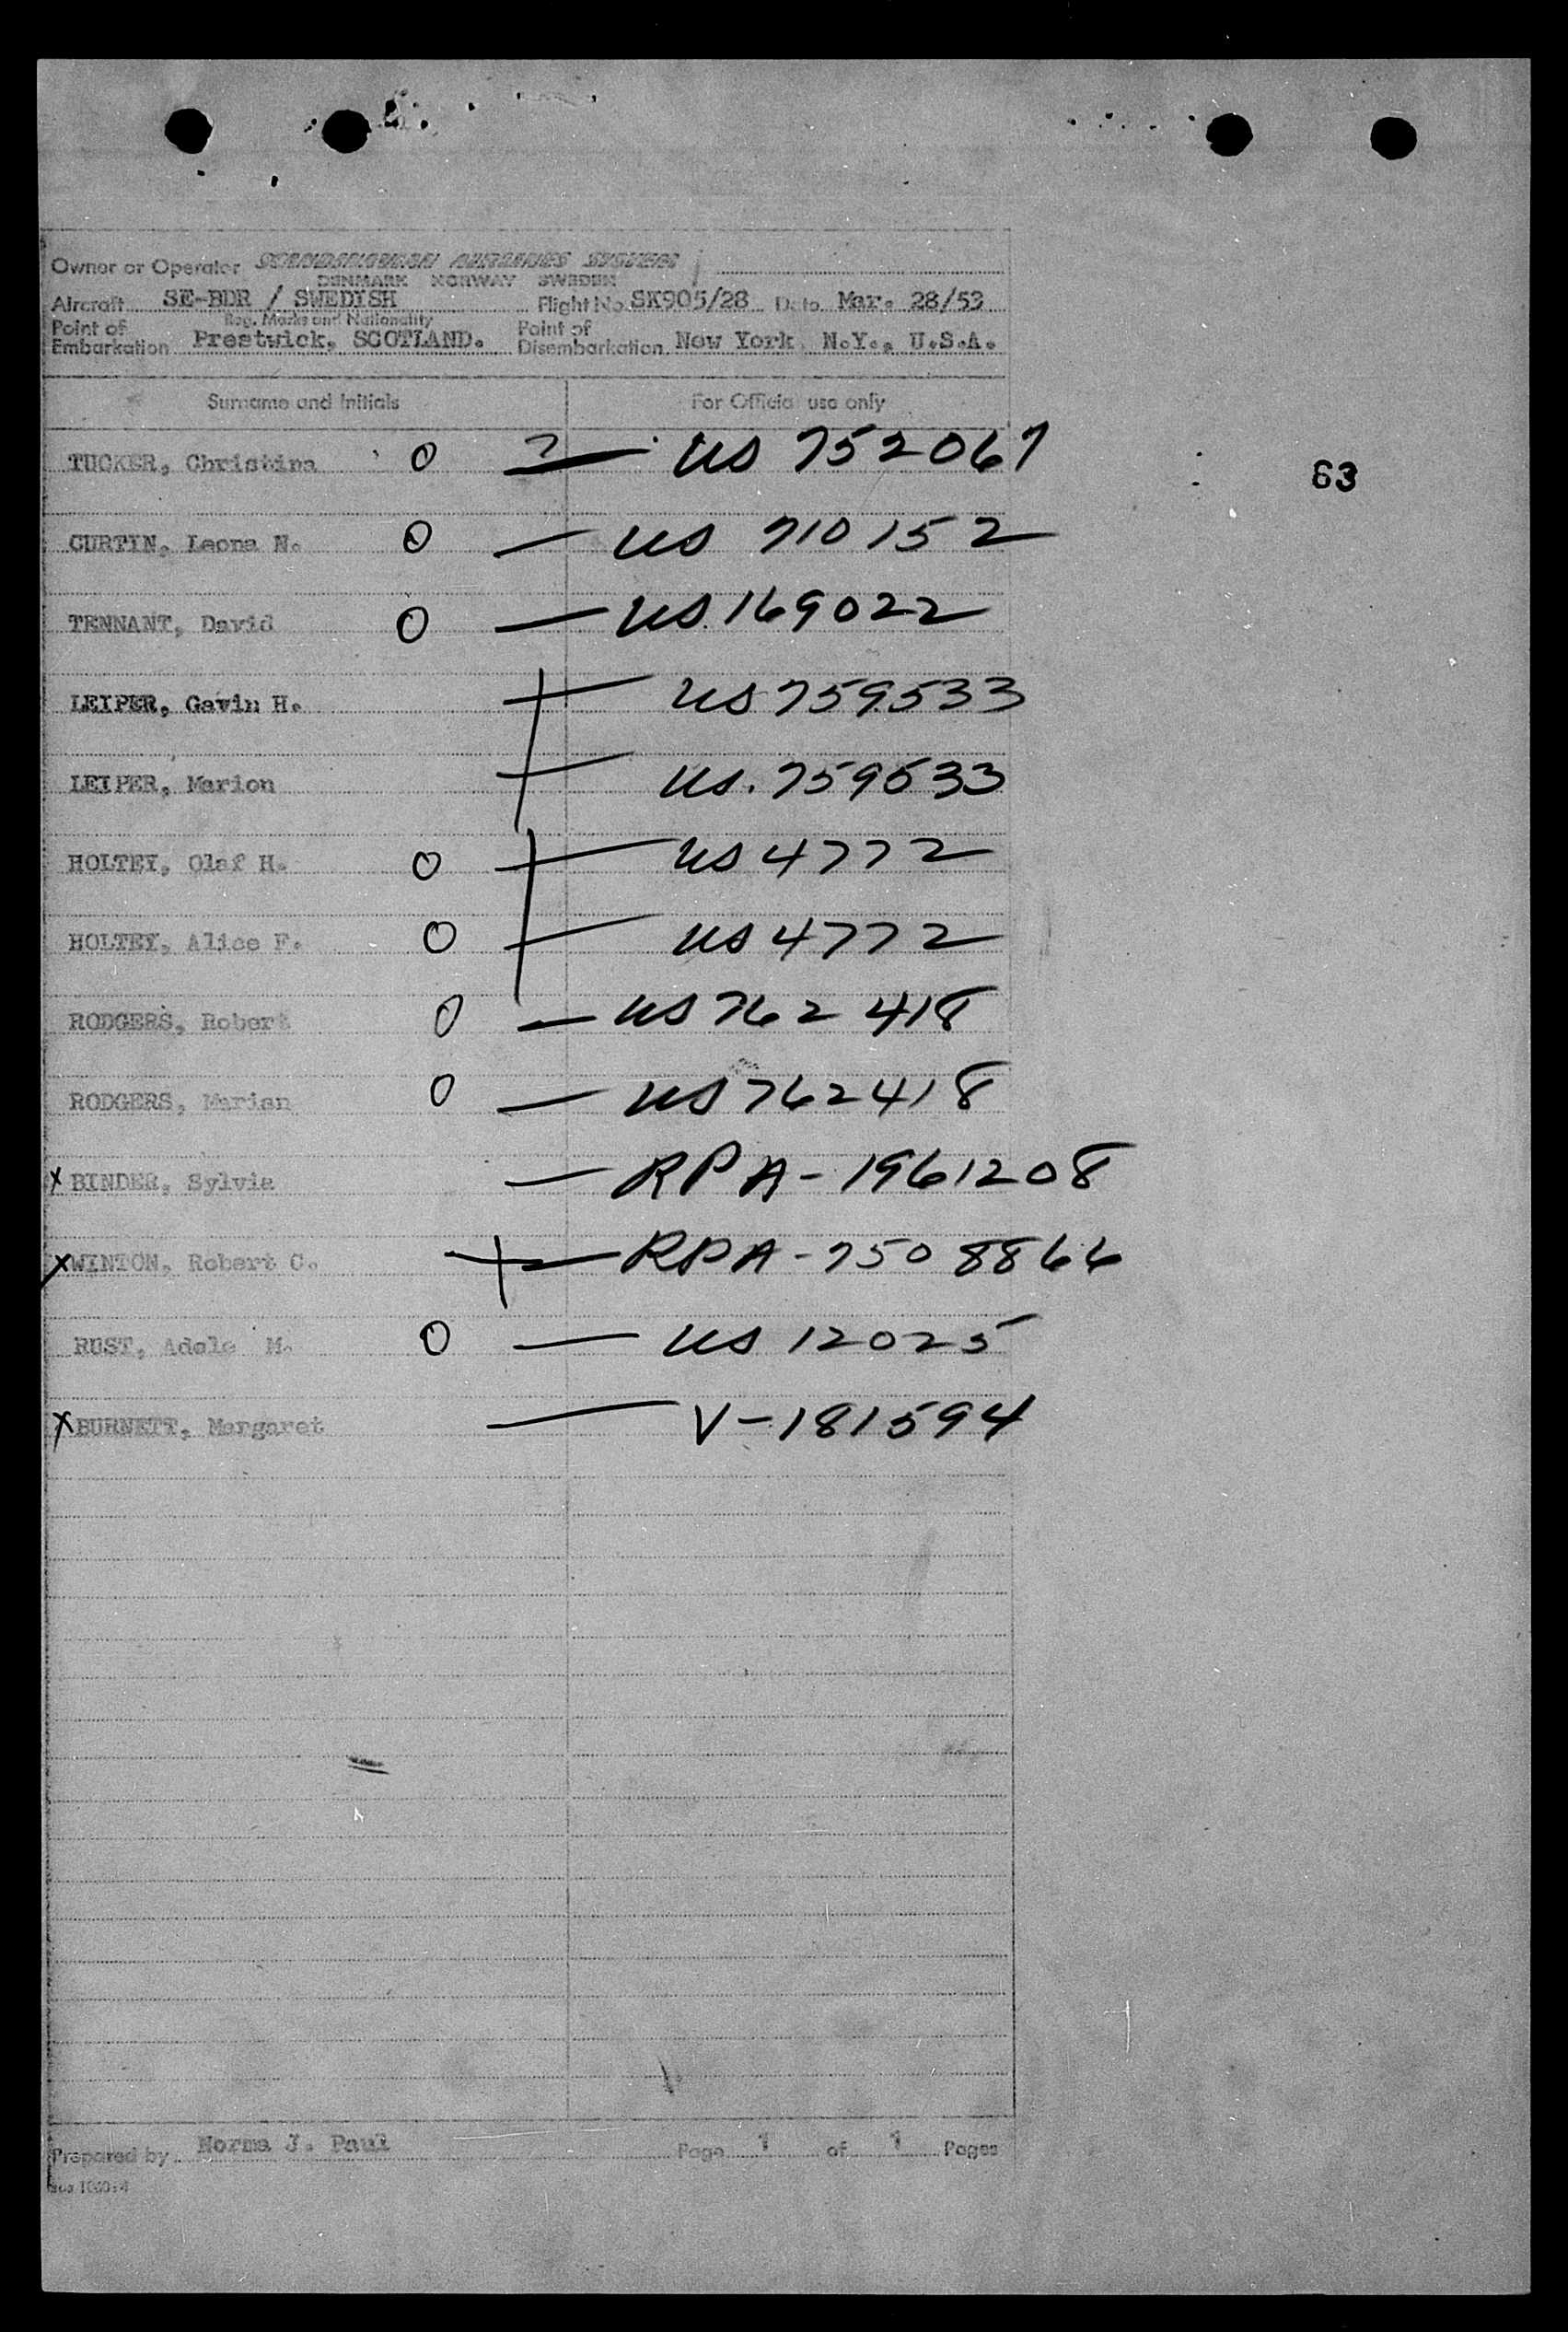 Owner or Operator SCANDINAVIAN AIRLINES SYSTEM
DENMARK NORWAY SWEDEN
Aircraft SE-BDR / SWEDISH Flight No. SK905/28 Date Mar. 28/53
Reg. Marks and Nationality
Point of Embarkation Prestwick, SCOTLAND. Point of Disembarkation New York, N.Y., U.S.A.
Surname and Initials For Official use only
TUCKER, Christina O ? — US 752067
63
CURTIN, Leona N. O — US 710152
TENNANT, David O — US 169022
LEIPER, Gavin H. — US 759533
LEIPER, Marion — US. 759533
HOLTEY, Olaf H. O — US 4772
HOLTEY, Alice F. O — US 4772
RODGERS, Robert O — US 762418
RODGERS, Marian O — US 762418
x BINDER, Sylvia — RPA-1961208
x WINTON, Robert C. — RPA-7508866
RUST, Adele M. O — US 12025
x BURNETT, Margaret — V-181594
Prepared by Norma J. Paul Page 1 of 1 Pages